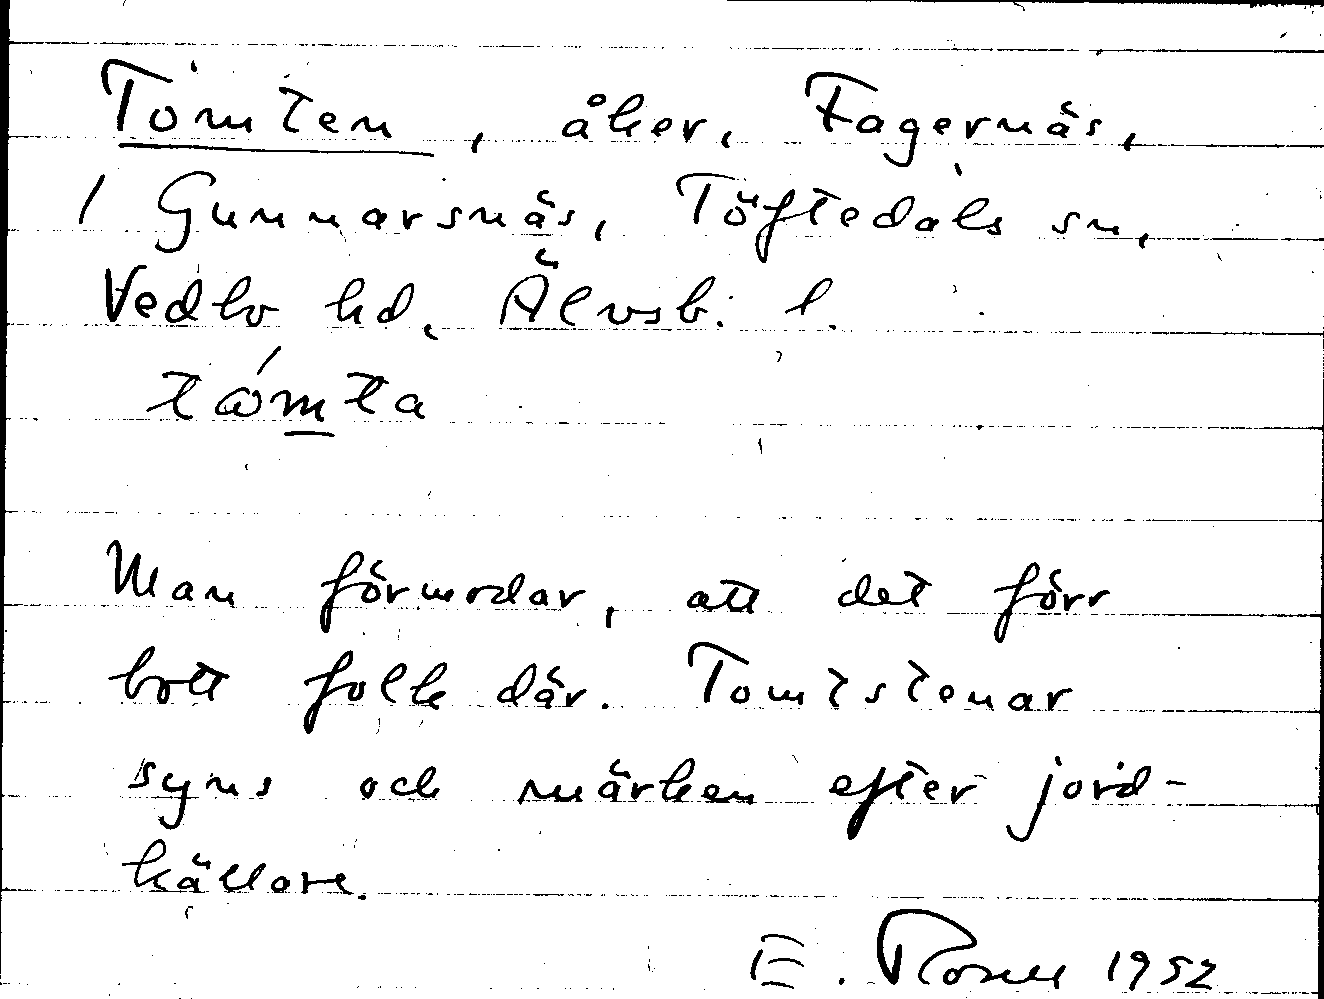 Tomten, åker, Fagernäs,
/ Gunnarsnäs, Töftedals sn,
Vedbo hd, Älvsb. l.
tώmta
Man förmodar, att det förr
bott folk där. Tomtstenar
syns och märken efter jord-
källare.
E. 1952